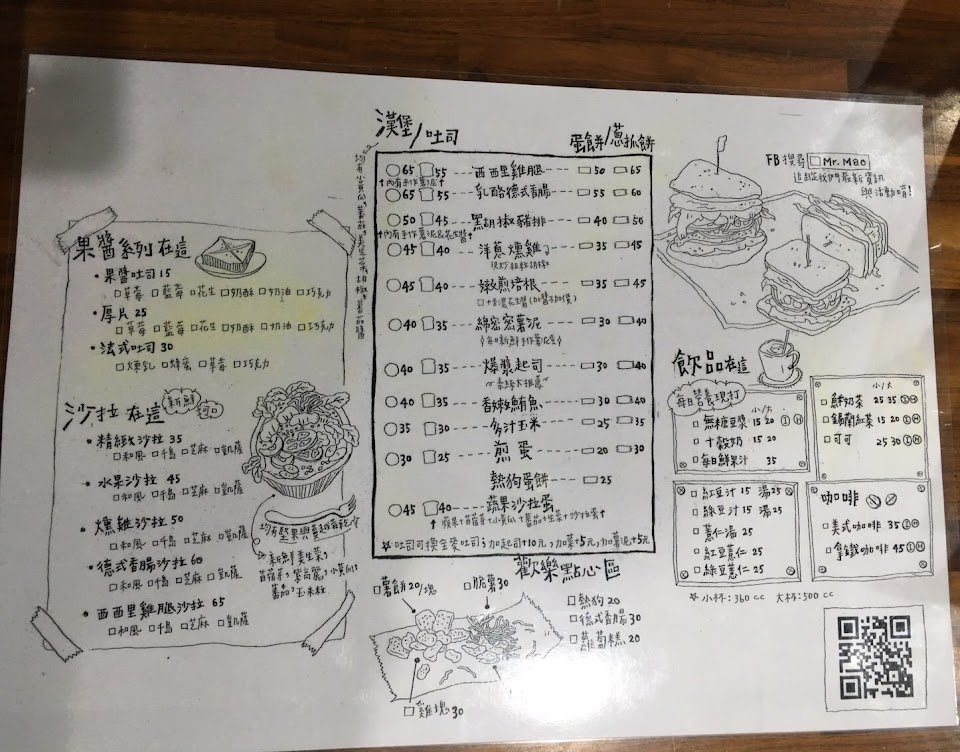 果醬系列在這
・果醬吐司 15
□草莓 □藍莓 □花生 □奶酥 □奶油 □巧克力
・厚片 25
□草莓 □藍莓 □花生 □奶酥 □奶油 □巧克力
・法式吐司 30
□煉乳 □蜂蜜 □草莓 □巧克力
沙拉在這
新鮮
可口
・精緻沙拉 35
□和風 □千島 □芝麻 □凱薩
・水果沙拉 45
□和風 □千島 □芝麻 □凱薩
・燻雞沙拉 50
□和風 □千島 □芝麻 □凱薩
・德式香腸沙拉 60
□和風 □千島 □芝麻 □凱薩
・西西里雞腿沙拉 65
□和風 □千島 □芝麻 □凱薩
均有堅果與蔓越莓乾
新鮮美生菜,
苜蓿芽,紫高麗,小黃瓜,
番茄,玉米粒
漢堡/吐司
蛋餅/蔥抓餅
65 55 --- 西西里雞腿 --- 55 65
↑內有手作薯泥↑
65 55 --- 乳酪德式香腸 --- 50 60
50 45 --- 黑胡椒豬排 --- 40 50
↑內有手作薯泥&花生醬↑
45 40 --- 洋蔥燻雞 --- 35 45
45 40 --- 嫩煎培根 --- 35 45
40 35 --- 綿密密薯泥 --- 30 40
(每日新鮮手作薯泥)
40 35 --- 爆漿起司 --- 30 40
40 35 --- 香嫩鮪魚 --- 30 40
35 30 --- 多汁玉米 --- 25 35
30 25 --- 煎蛋 --- 20 30
熱狗蛋餅 --- 25
45 40 --- 蔬果沙拉蛋
↑蘋果+苜蓿芽+小黃瓜+番茄+生菜+沙拉蛋↑
☆吐司可換全麥吐司,加起司+10元,加菜+5元,加薯泥+5元
歡樂點心區
□薯餅 20/塊
□脆薯 30
□熱狗 20
□德式香腸 30
□蘿蔔糕 20
□雞塊 30
FB搜尋 □Mr. Mao
追蹤我們最新資訊
與活動唷!
飲品在這
每日營養現打
小/大
□無糖豆漿 15 20 I H
□十穀奶 15 20
□每日鮮果汁 35
小/大
□鮮奶茶 25 35 I H
□錫蘭紅茶 15 20 I H
□可可 25 30 I H
□紅豆汁 15 湯25
□綠豆汁 15 湯25
□薏仁湯 25
□紅豆薏仁 25
□綠豆薏仁 25
咖啡
□美式咖啡 35 I H
□拿鐵咖啡 45 I H
☆小杯:360cc 大杯:500cc